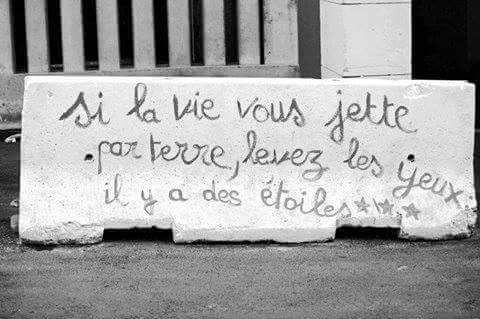 si la vie vous jette
par terre, levez les yeux
il y a des étoiles ***